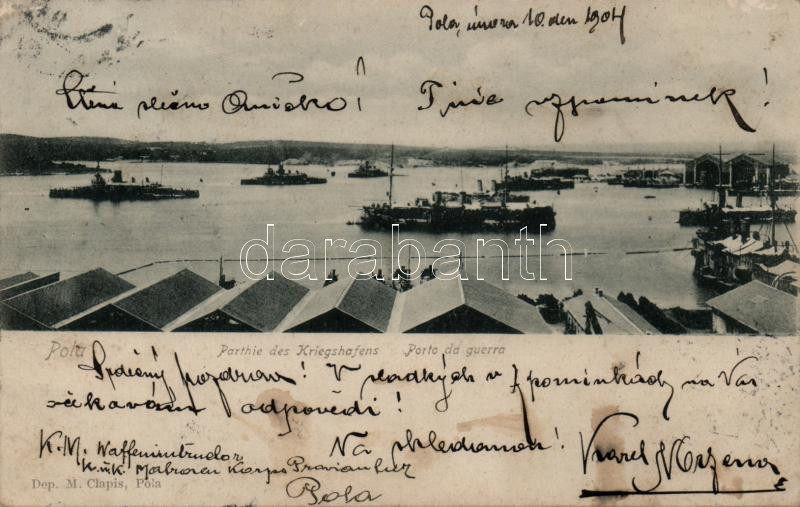 Pola, února 10. den 1904
Ctěná slečno Aničko! Tisíc vzpomínek!
darabanth.com
Pola Parthie des Kriegshafens Porto da guerra
Srdečný pozdrav! V sladkých vzpomínkách na Vás
očkavám odpovědi!
Na shledanou! Karel
K.M.
K.u.K. Matrosen Korps Provianthur
Pola
Dep. M. Clapis, Pola